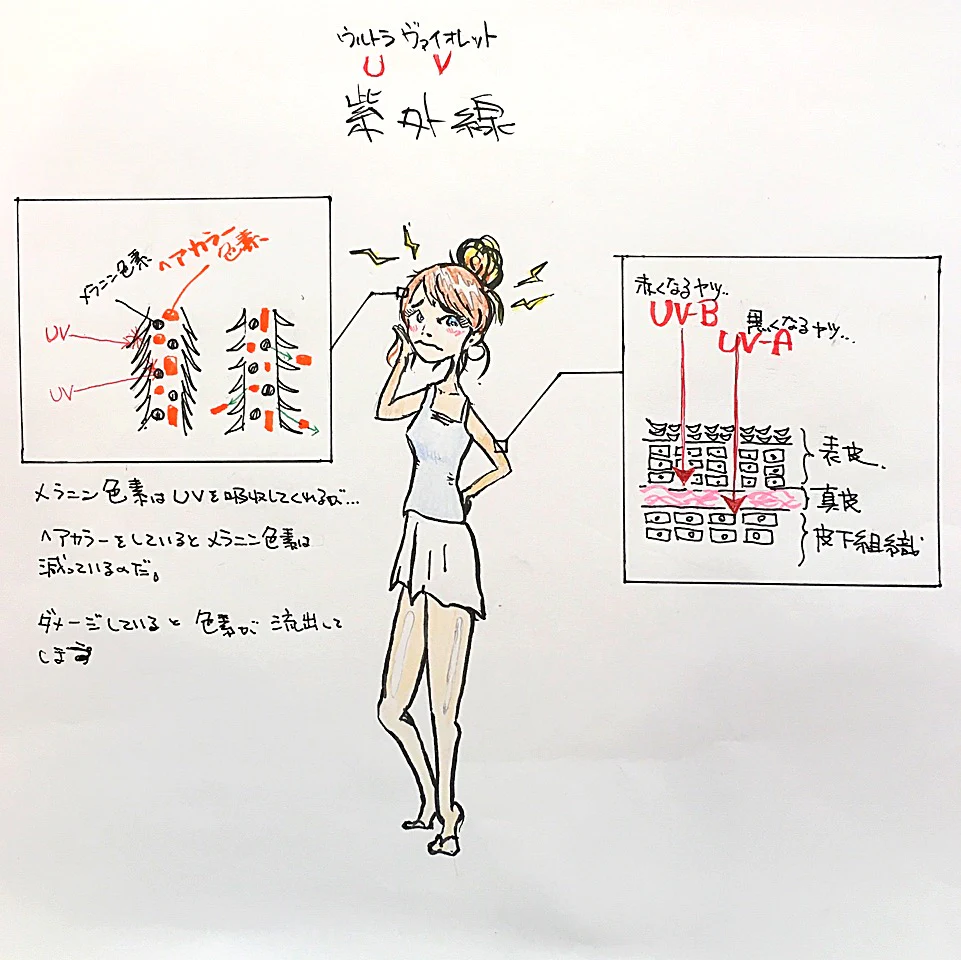 ウルトラ ヴァイオレット
U V
紫外線
メラニン色素
ヘアカラー
色素
UV
UV
メラニン色素はUVを吸収してくれるが…
ヘアカラーをしているとメラニン色素は
減っているのだ。
ダメージしていると色素が流出して
します
赤くなるヤツ..
UV-B
黒くなるヤツ…
UV-A
表皮
真皮
皮下組織